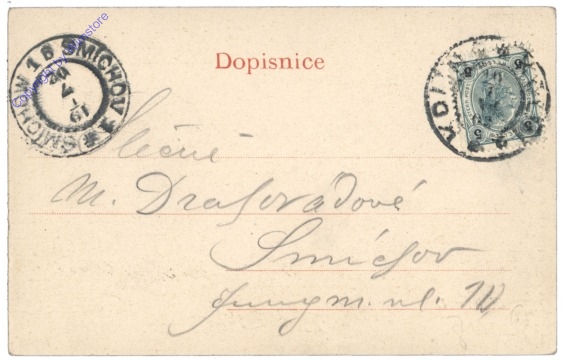 Dopisnice
SMICHOW 1 6 SMÍCHOV 1
Slečně
M. Drahorádové
Smíchov
Jungm. ul. 10
5 5
5 5